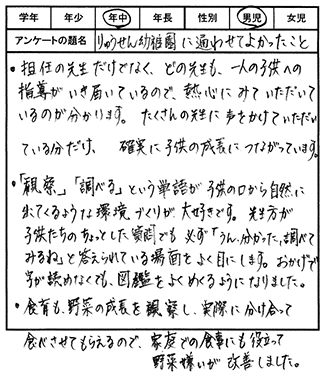 学年 年少 年中 年長 性別 男児 女児
アンケートの題名 りゅうせん幼稚園に通わせてよかったこと
• 担任の先生だけでなく、どの先生も、一人の子供への
指導がいき届いているので、熱心にみていただいて
いるのが分かります。たくさんの先生に声をかけていただい
ている分だけ、確実に子供の成長につながっています。
• 「観察」「調べる」という単語が子供の口から自然に
出てくるような環境づくりが大好きです。先生方が
子供たちのちょっとした質問でも必ず「うん、分かった、調べて
みるね」と答えられている場面をよく目にします。おかげで
字が読めなくても、図鑑をよくめくるようになりました。
• 食育も、野菜の成長を観察し、実際に分け合って
食べさせてもらえるので、家庭での食事にも役立って
野菜嫌いが改善しました。